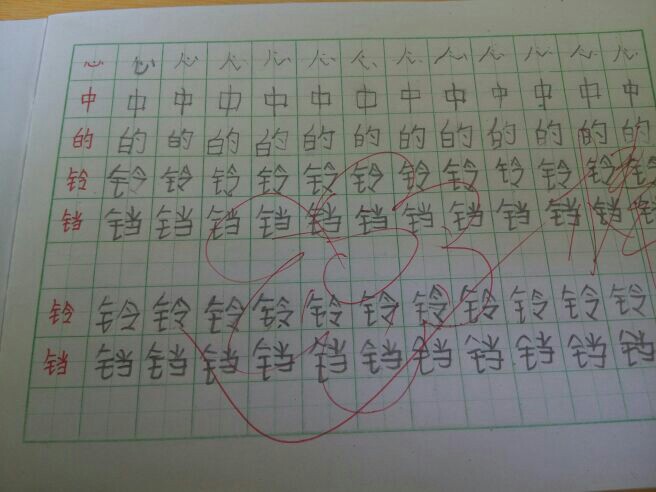 心心心心心心心心心心心心心
中中中中中中中中中中中中中
的的的的的的的的的的的的的
铃铃铃铃铃铃铃铃铃铃铃铃铃
铛铛铛铛铛铛铛铛铛铛铛铛铛
铃铃铃铃铃铃铃铃铃铃铃铃
铛铛铛铛铛铛铛铛铛铛铛铛